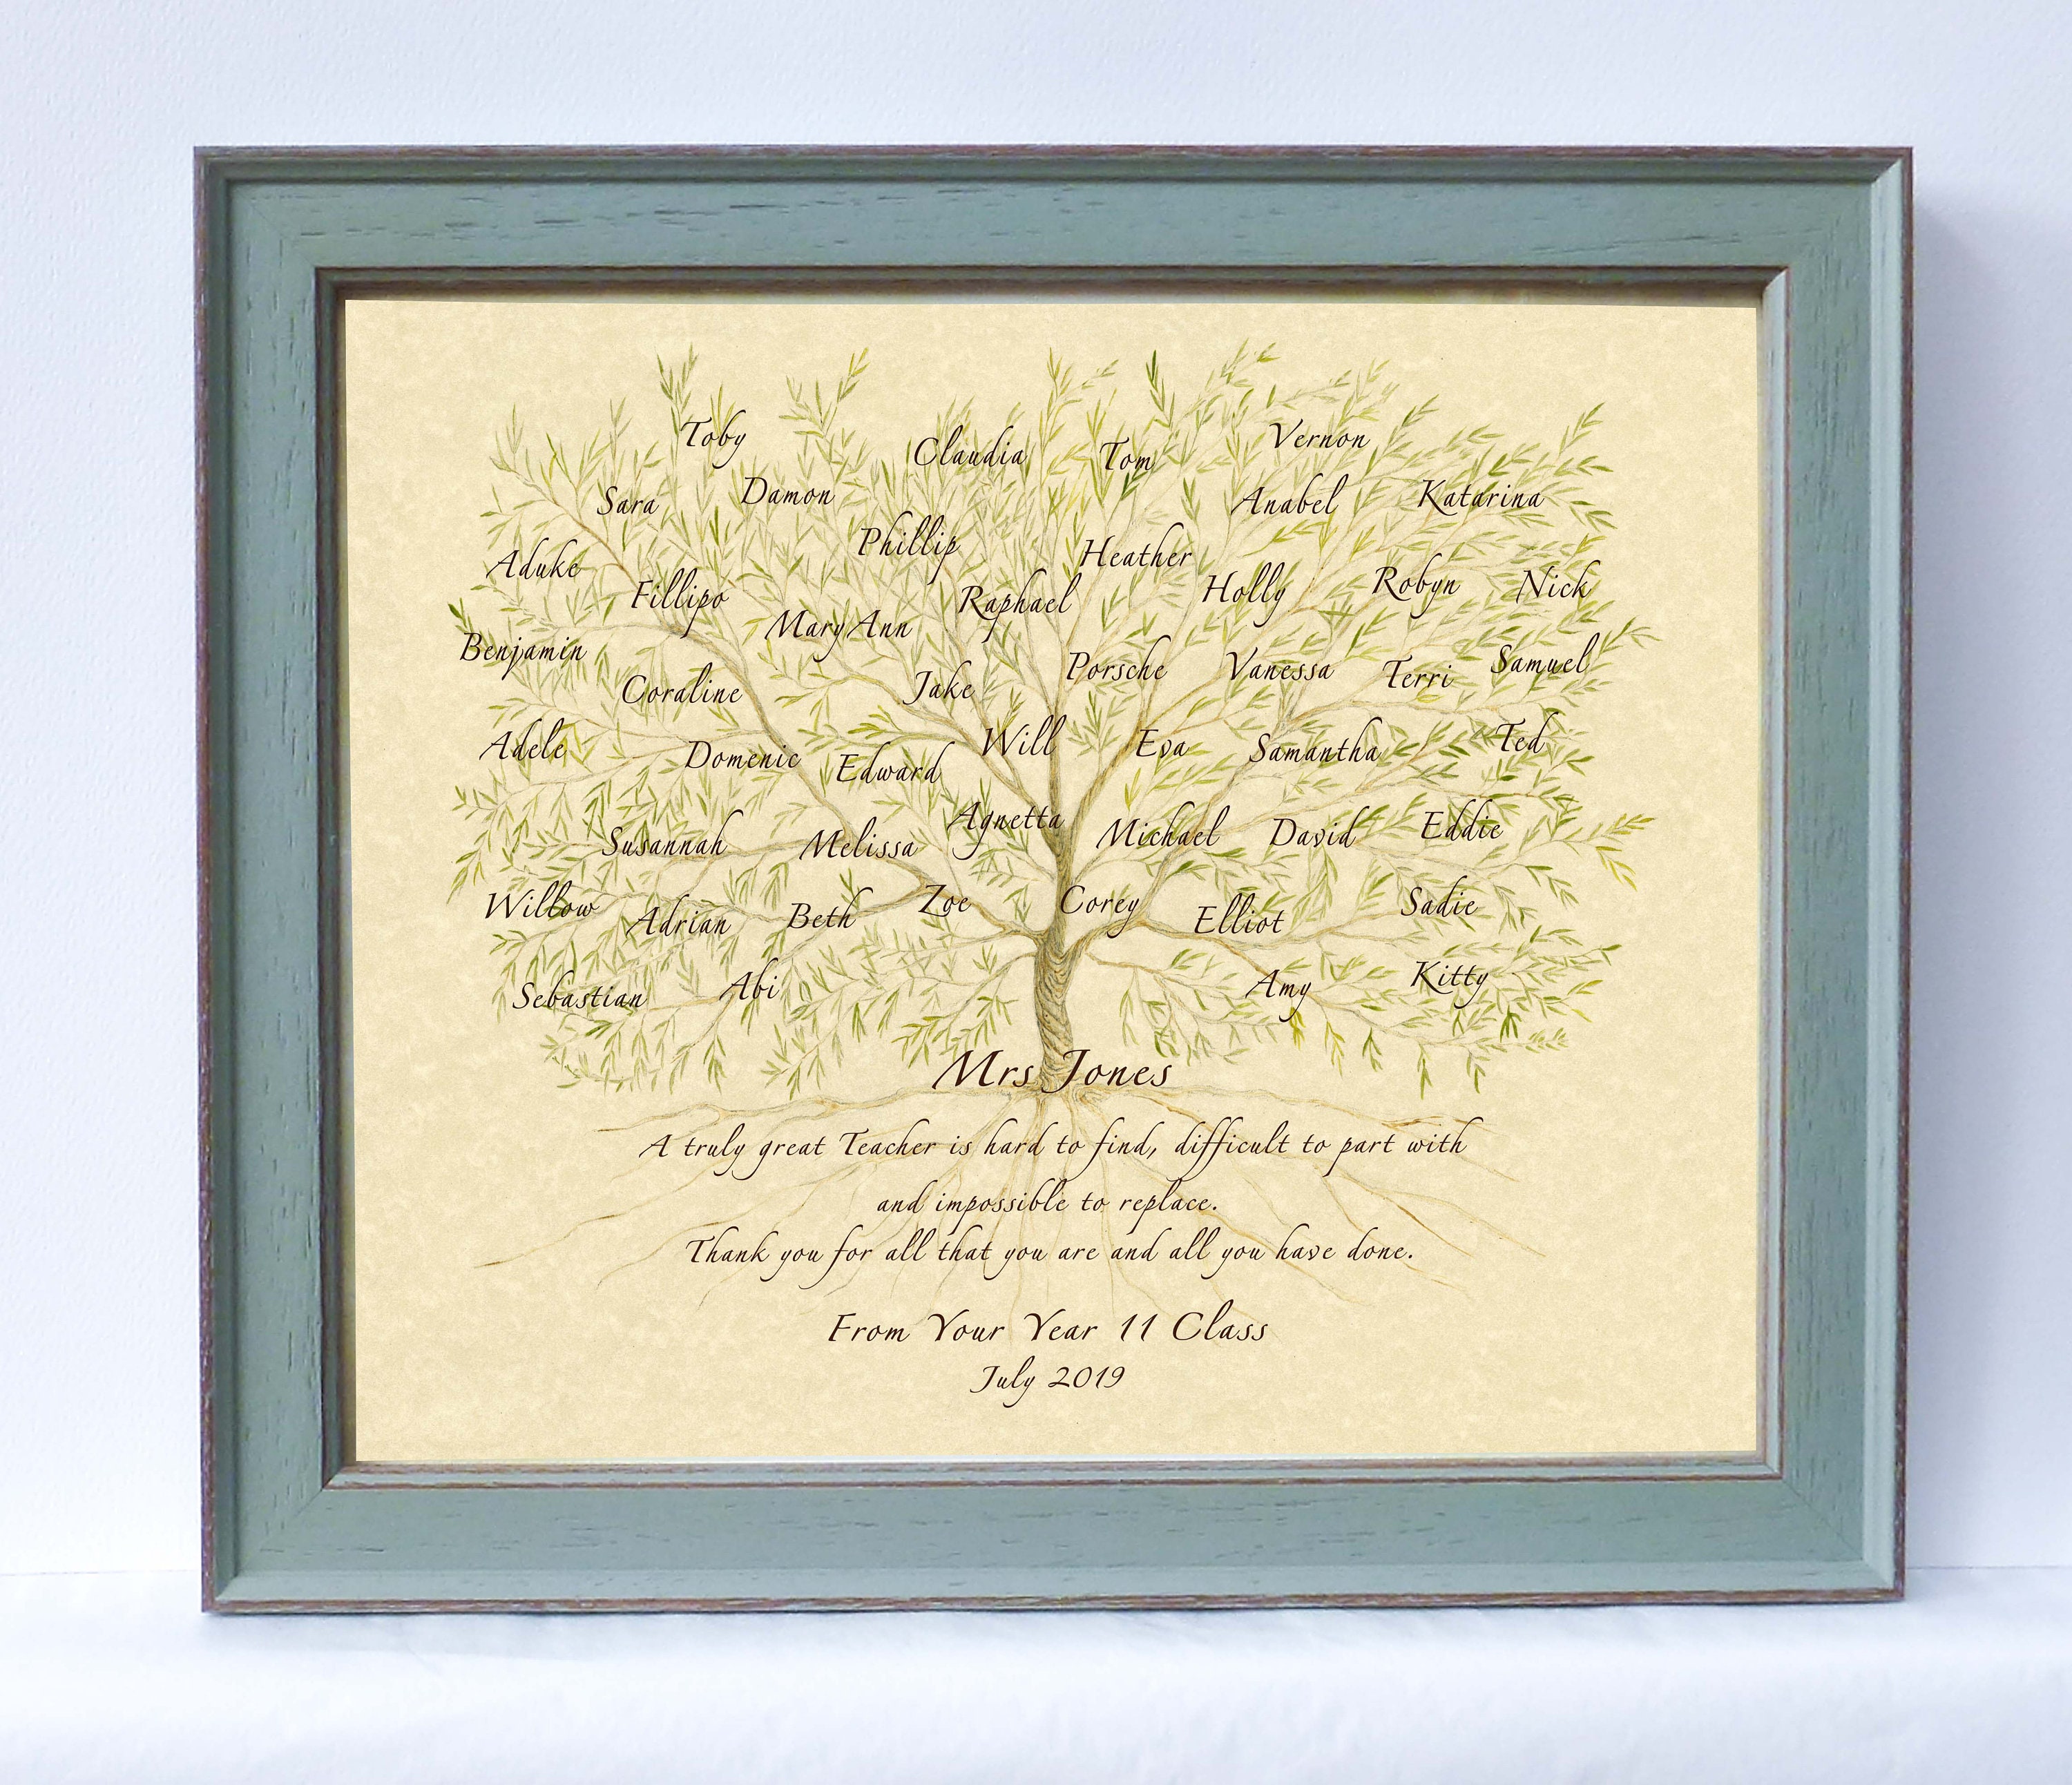 Toby
Claudia
Tom
Vernon
Sara
Damon
Anabel
Katarina
Phillip
Heather
Aduke
Fillipo
Raphael
Holly
Robyn
Nick
Mary Ann
Benjamin
Coraline
Jake
Porsche
Vanessa
Terri
Samuel
Adele
Domenic
Edward
Will
Eva
Samantha
Ted
Agnetta
Susannah
Melissa
Michael
David
Eddie
Willow
Adrian
Beth
Zoe
Corey
Elliot
Sadie
Sebastian
Abi
Amy
Kitty
Mrs Jones
A truly great Teacher is hard to find, difficult to part with
and impossible to replace.
Thank you for all that you are and all you have done.
From Your Year 11 Class
July 2019